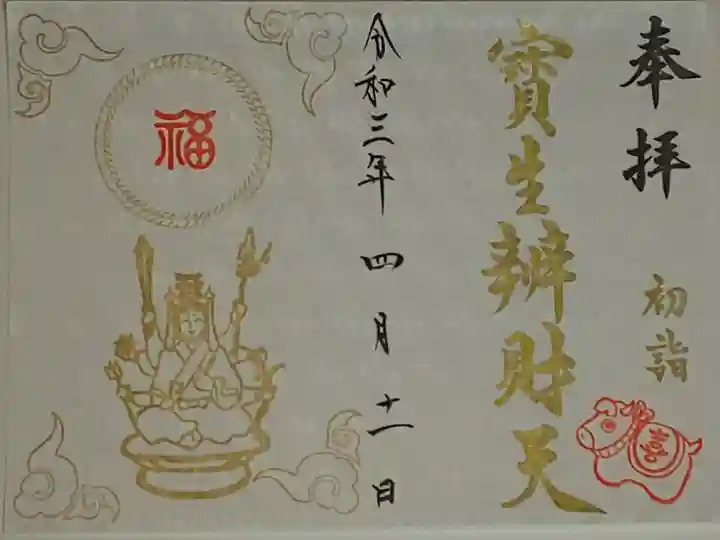 奉拝
初詣
喜
寳生辨財天
令和三年四月十一日
福